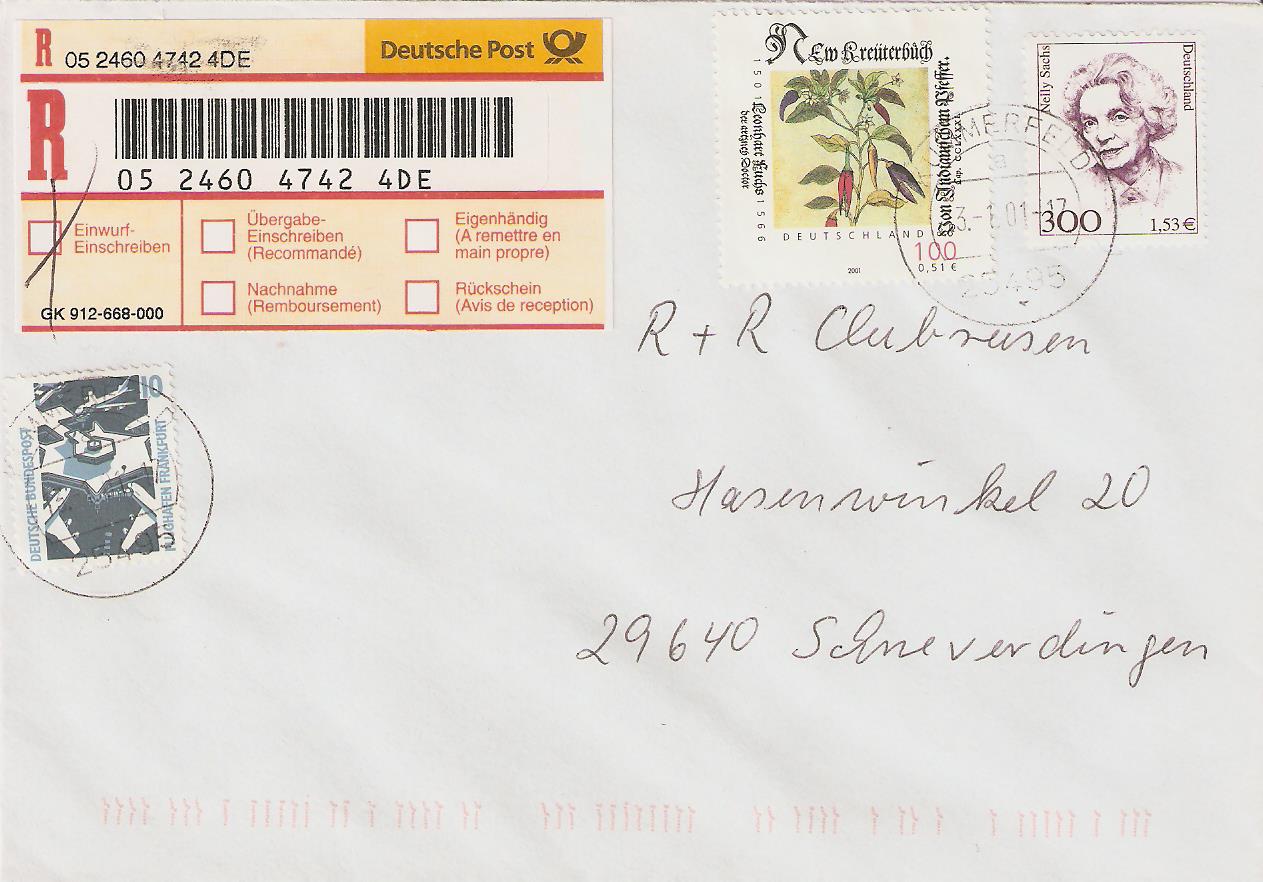 R 05 2460 4742 4DE
Deutsche Post
R
05 2460 4742 4DE
Einwurf-
Einschreiben
Übergabe-
Einschreiben
(Recommandé)
Eigenhändig
(A remettre en
main propre)
Nachnahme
(Remboursement)
Rückschein
(Avis de reception)
GK 912-668-000
New Kreüterbůch
1501 Leonhart Fuchs 1566
der artzney Doctor
Von Indianischem Pfeffer.
Cap. CCLXXXI.
DEUTSCHLAND
100
0,51 €
2001
Nelly Sachs
Deutschland
300
1,53 €
25495
R + R Clubreisen
Hasenwinkel 20
29640 Schneverdingen
10
DEUTSCHE BUNDESPOST
FLUGHAFEN FRANKFURT
25495